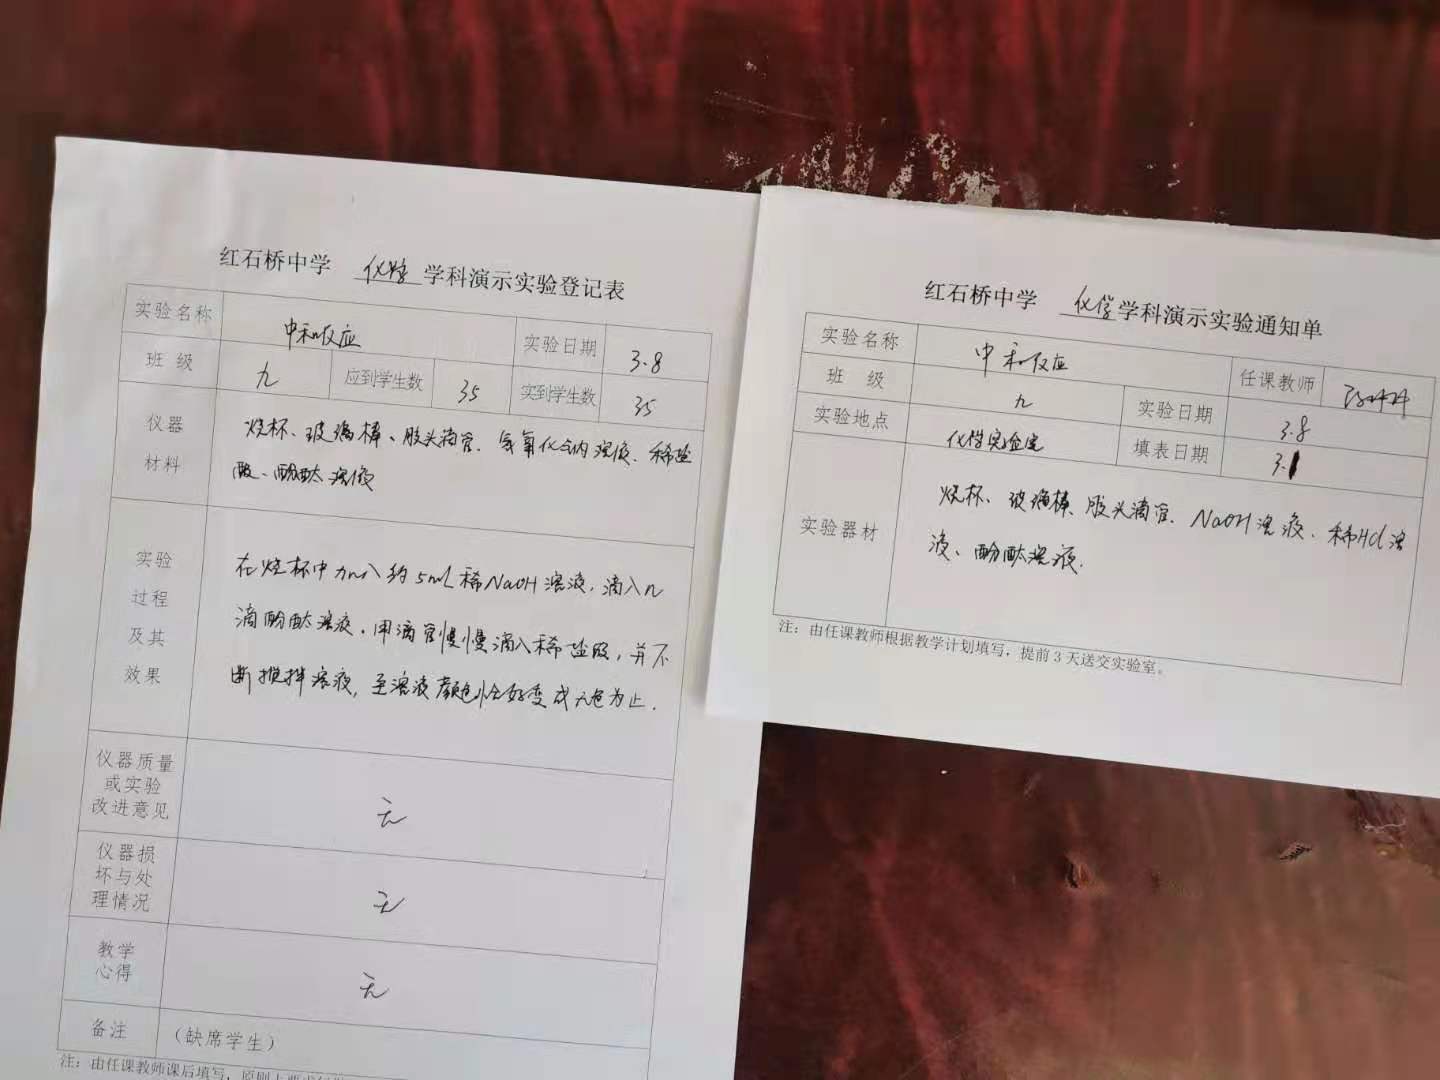 红石桥中学 化学 学科演示实验登记表
实验名称 中和反应 实验日期 3.8
班 级 九 应到学生数 35 实到学生数 35
仪器
材料
烧杯、玻璃棒、胶头滴管、氢氧化钠溶液、稀盐
酸、酚酞溶液
实验
过程
及其
效果
在烧杯中加入约5mL稀NaOH溶液,滴入几
滴酚酞溶液.用滴管慢慢滴入稀盐酸,并不
断搅拌溶液,至溶液颜色恰好变成无色为止.
仪器质量
或实验
改进意见
无
仪器损
坏与处
理情况
无
教学
心得
无
备注 (缺席学生)
注:由任课教师课后填写,原则上要求
红石桥中学 化学 学科演示实验通知单
实验名称 中和反应 任课教师
班 级 九 实验日期 3.8
实验地点 化学实验室 填表日期 3.1
实验器材
烧杯、玻璃棒、胶头滴管、NaOH溶液、稀HCl溶
液、酚酞溶液.
注:由任课教师根据教学计划填写,提前3天送交实验室。